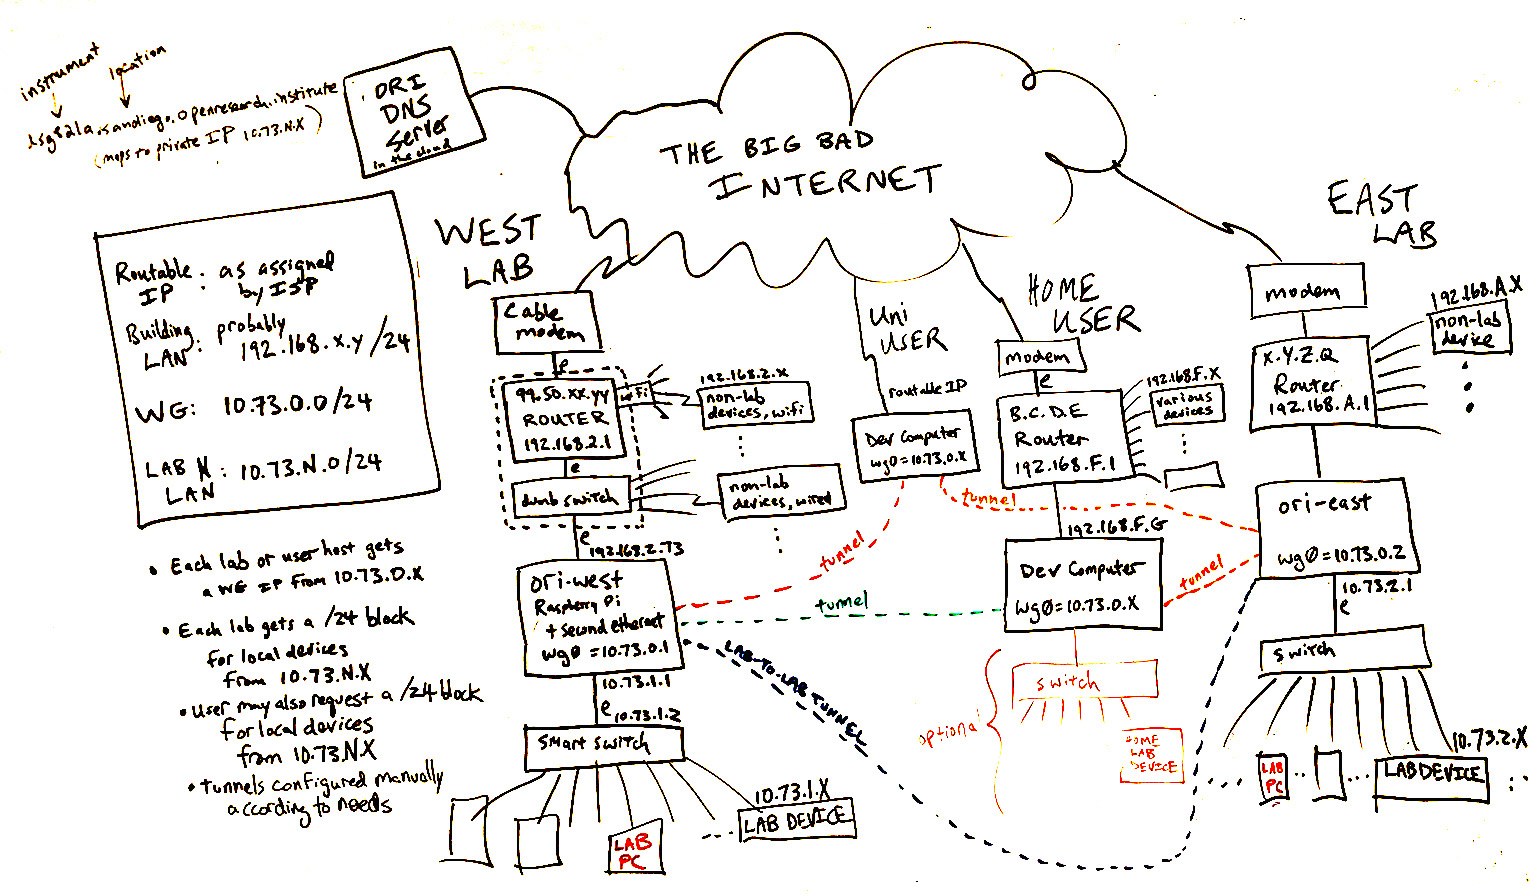 instrument
location
dsg821a.sandiego.openresearch.institute
(maps to private IP 10.73.N.X)
ORI
DNS
Server
in the cloud
THE BIG BAD
INTERNET
Routable IP: as assigned
by ISP
Building LAN: probably
192.168.x.y/24
WG: 10.73.0.0/24
LAB N LAN: 10.73.N.0/24
• Each lab or user host gets
a WG IP from 10.73.0.X
• Each lab gets a /24 block
for local devices
from 10.73.N.X
• User may also request a /24 block
for local devices
from 10.73.N.X
• tunnels configured manually
according to needs
WEST
LAB
Cable
modem
e
99.50.xx.yy
ROUTER
192.168.2.1
wifi
192.168.2.X
non-lab
devices, wifi
e
dumb switch
non-lab
devices, wired
e
192.168.2.73
ori-west
Raspberry Pi
+ second ethernet
wg0 = 10.73.0.1
10.73.1.1
e
10.73.1.2
smart switch
LAB
PC
10.73.1.X
LAB DEVICE
Uni
USER
routable IP
Dev Computer
wg0=10.73.0.X
tunnel
tunnel
tunnel
tunnel
LAB-TO-LAB TUNNEL
HOME
USER
modem
e
B.C.D.E
Router
192.168.F.1
192.168.F.X
various
devices
192.168.F.G
Dev Computer
wg0=10.73.0.X
optional
switch
HOME
LAB
DEVICE
EAST
LAB
modem
X.Y.Z.Q
Router
192.168.A.1
192.168.A.X
non-lab
device
ori-east
wg0=10.73.0.2
10.73.2.1
e
switch
10.73.2.X
LAB
PC
LAB DEVICE